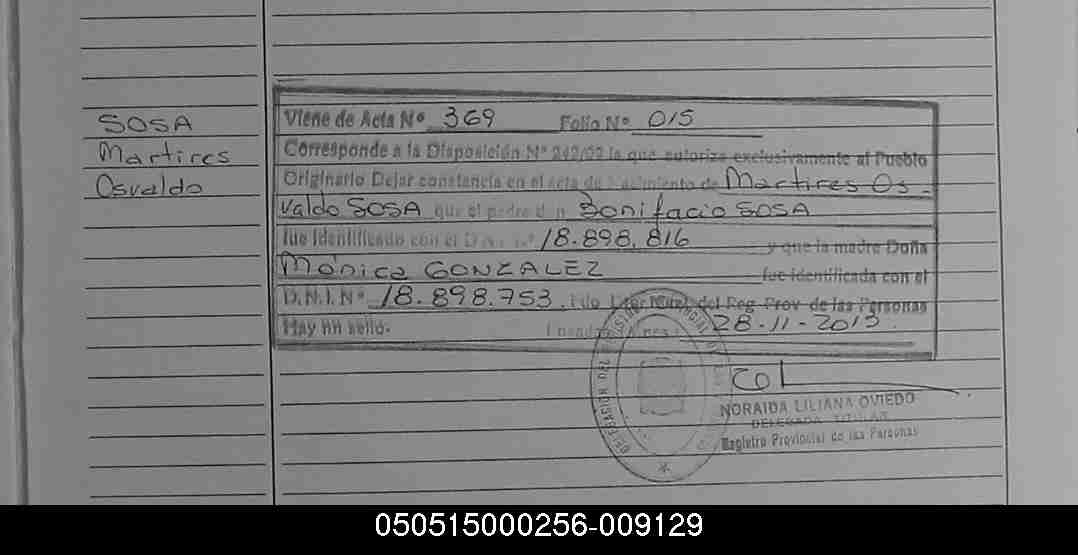 SOSA
Martires
Osvaldo
Viene de Acta Nº 369 Folio Nº 015
Corresponde a la Disposición Nº 242/99 la que autoriza exclusivamente al Pueblo
Originario Dejar constancia en el acta de Nacimiento de Martires Os-
valdo SOSA que el padre don Bonifacio SOSA
fue identificado con el D.N.I. Nº 18.898.816 y que la madre Doña
Mónica GONZALEZ fue identificada con el
D.N.I. Nº 18.898.753. del Reg. Prov. de las Personas
Hay un sello. 28-11-2013.
NORAIDA LILIANA OVIEDO
DELEGADA TITULAR
Registro Provincial de las Personas
050515000256-009129